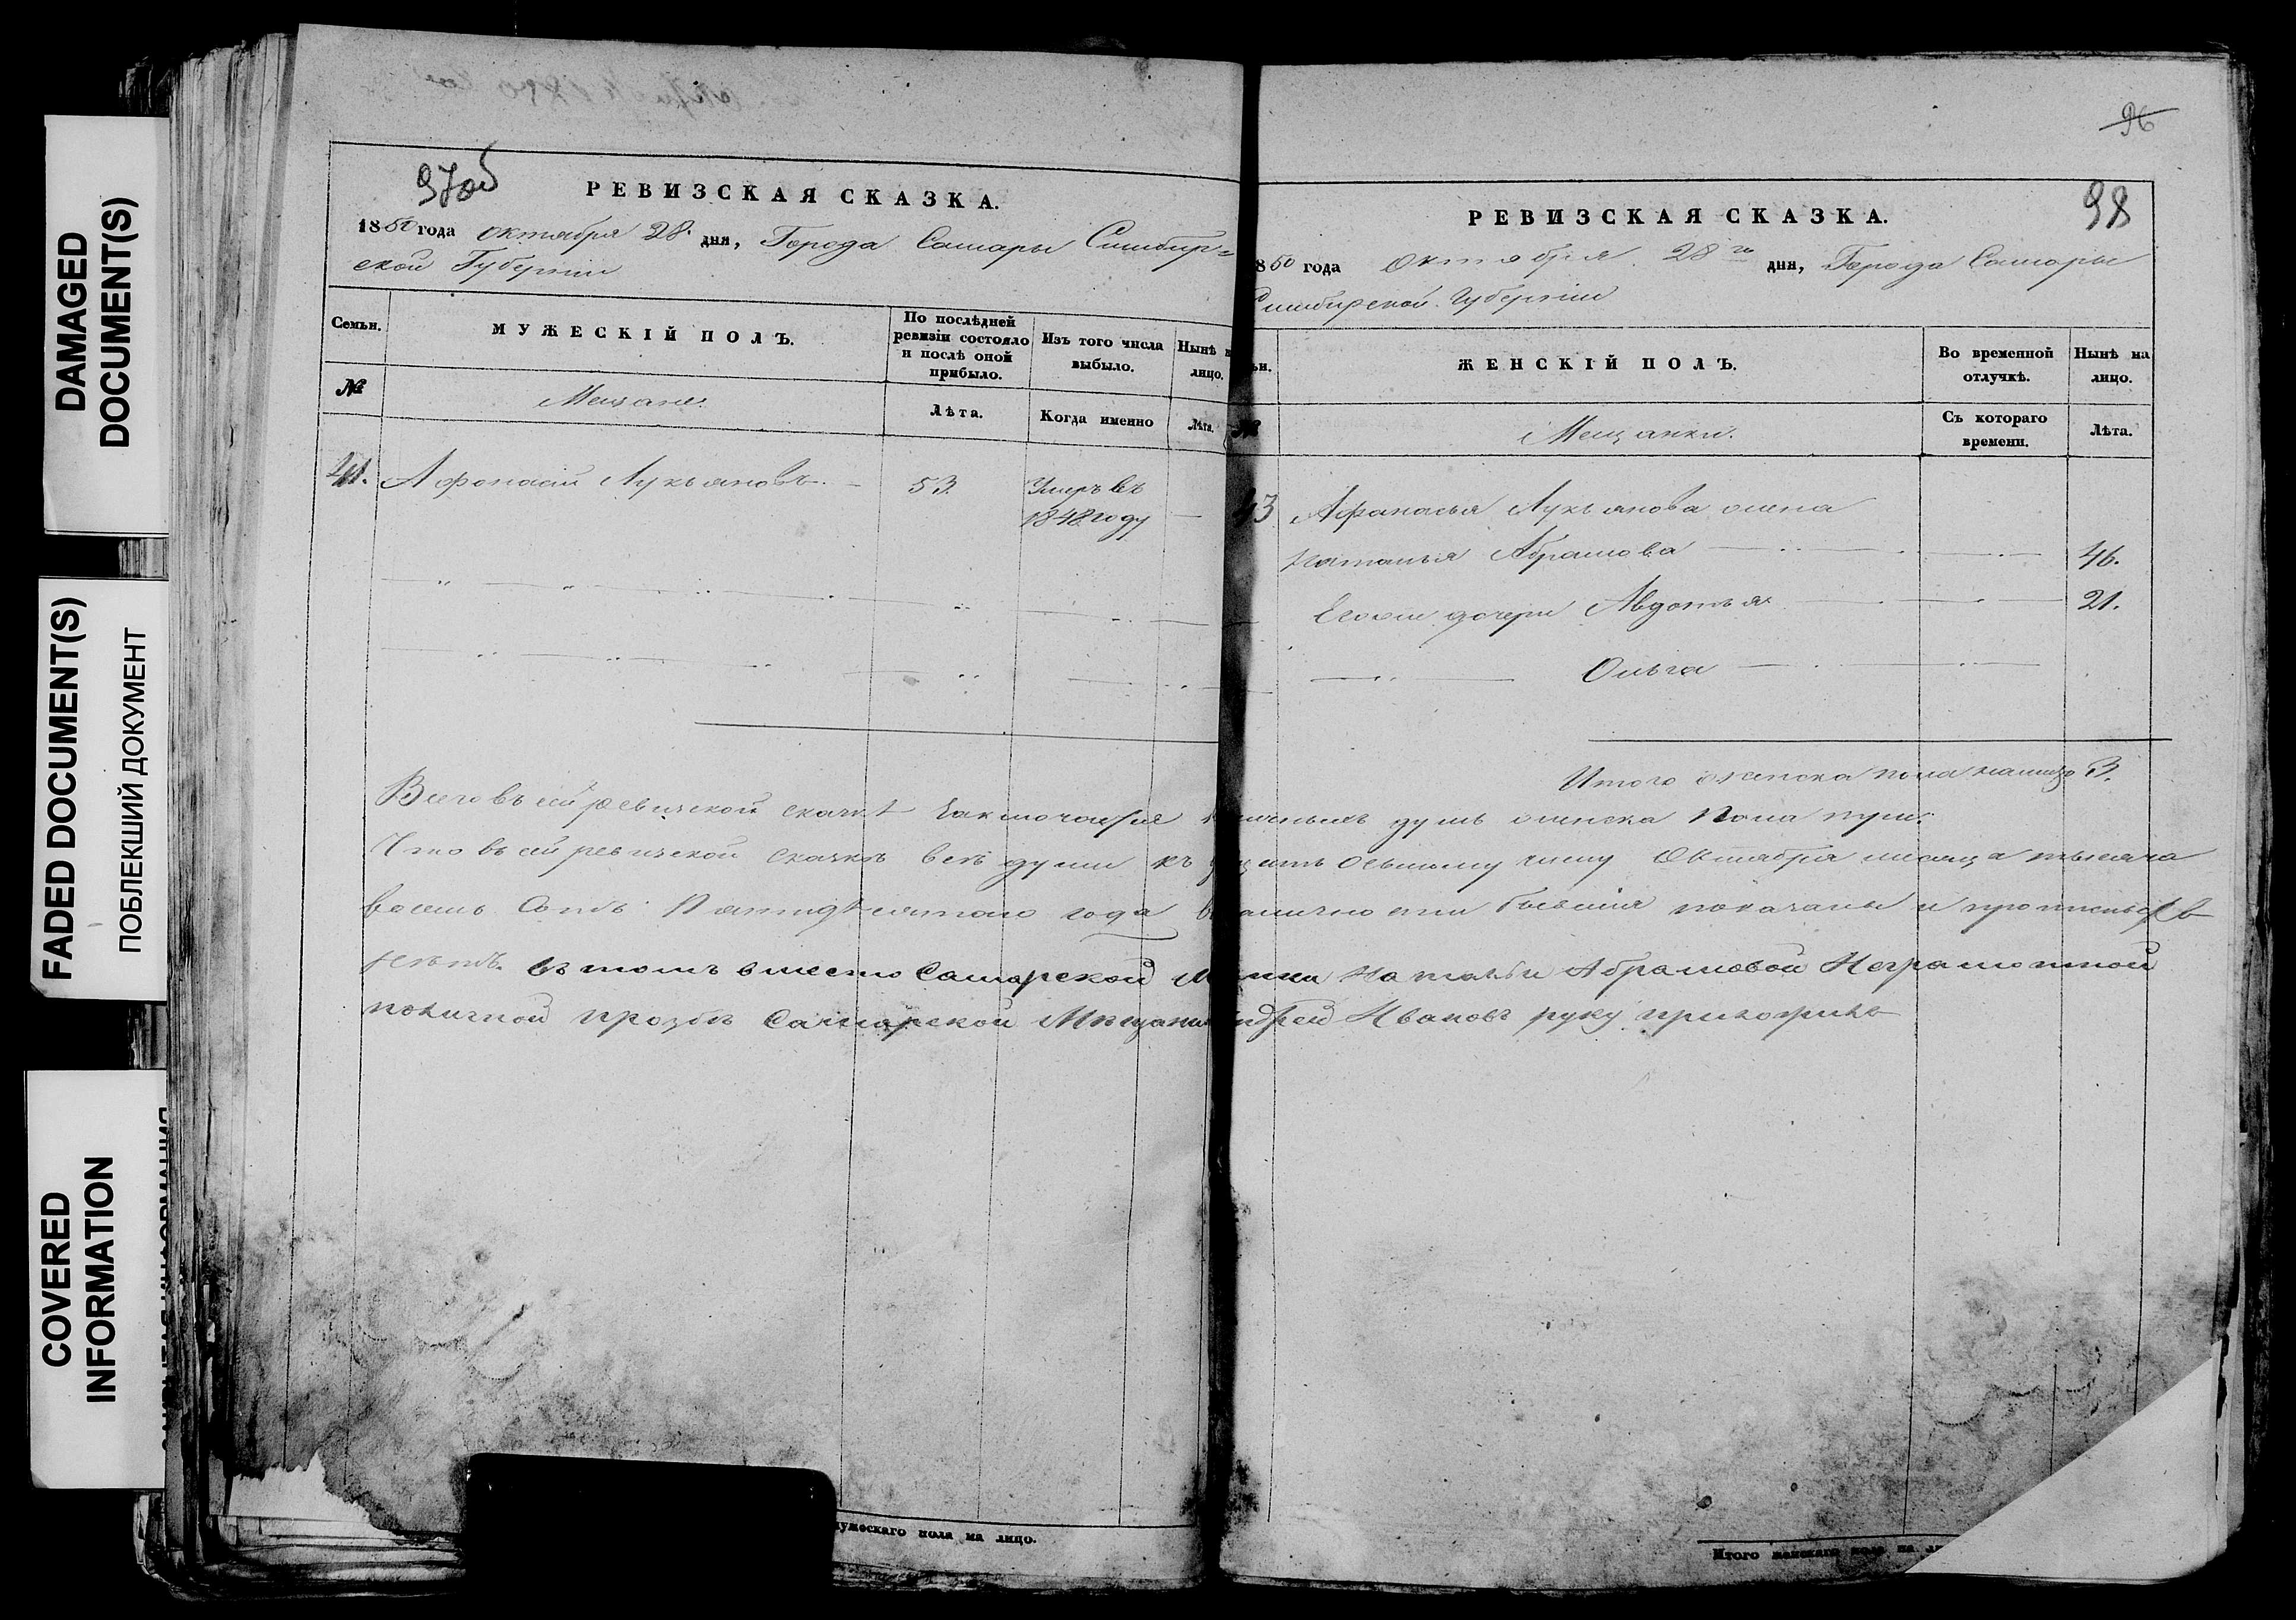 DAMAGED
DOCUMENT(S)
FADED DOCUMENT(S)
ПОБЛЕКШИЙ ДОКУМЕНТ
COVERED
INFORMATION
97об
РЕВИЗСКАЯ СКАЗКА.
1850 года октября 28. дня, Города Самары Симбир=
ской Губернии
Семьи. МУЖЕСКІЙ ПОЛЪ. По послѣдней ревизіи состояло и послѣ оной прибыло. Изъ того числа выбыло. Нынѣ на лицо.
№ Мещане. Лѣта. Когда именно Лѣта.
Афонасій Лукьяновъ. — 53. Умеръ въ
1848 году —
96
98
РЕВИЗСКАЯ СКАЗКА.
850 года Октября 28го дня, Города Самары
Симбирской Губерніи
ьи. ЖЕНСКІЙ ПОЛЪ. Во временной отлучкѣ. Нынѣ на лицо.
№ Мещанки. Съ котораго времени. Лѣта.
43 Афанасья Лукьянова жена
Наталья Абрамова 46.
Его же дочери Авдотья 21.
Ольга
Итого женска пола налицо 3.
Всего въ сей ревизской сказкѣ заключается наличныхъ душъ женска пола три.
Что въ сей ревизской сказкѣ всѣ души къ осьмому числу Октября месяца тысяча
восемь сотъ Пятидѣсятого года в наличности бывшия показаны и прописныхъ
нѣтъ. въ томъ вместо Самарской Мещанки Натальи Абрамовой Неграмотной
по личной прозбѣ Самарской Мѣщанинъ Андрей Ивановъ руку приложилъ
мужескаго пола на лицо.
Итого женскаго пола на ли